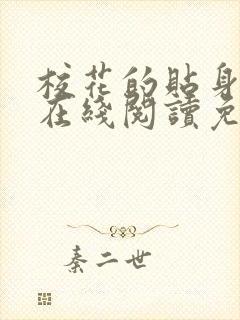 校花的貼身
在綫閱讀免
秦二世